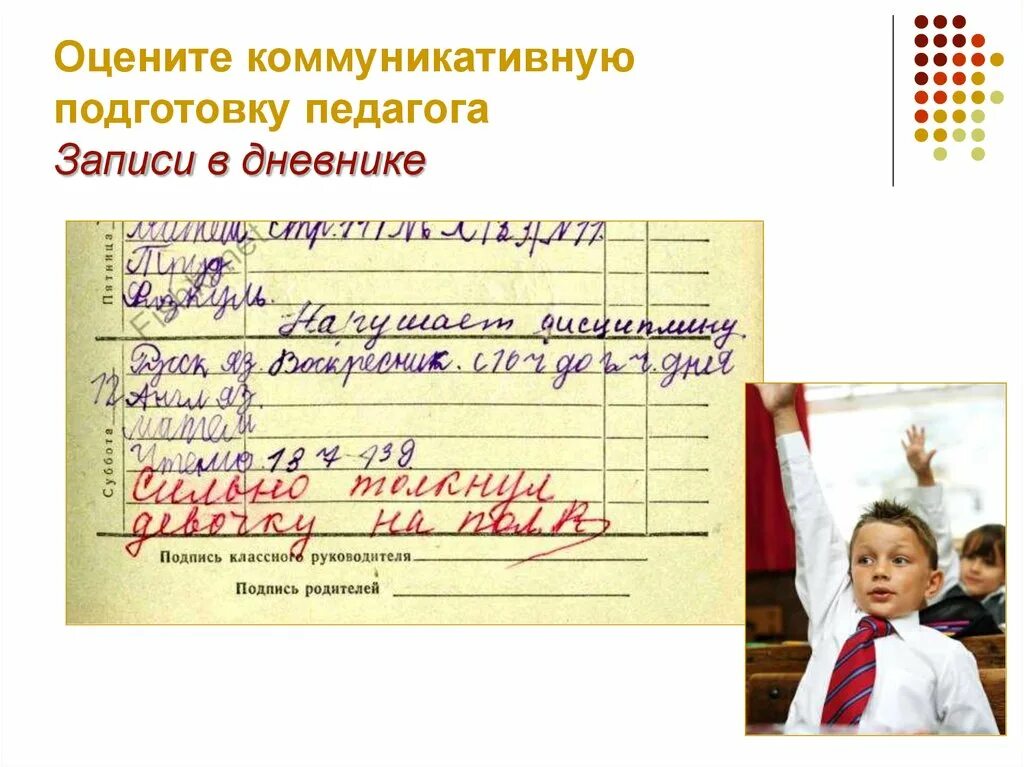 Оцените коммуникативную
подготовку педагога
Записи в дневнике
Пятница
Матем стр. 111 №
Труд
Физкуль.
Нарушает дисциплину
Суббота
12
Русск яз. Воскресник. с 10 ч до 2 ч. дня
Англ яз.
матем
Чтение 137-139
Сильно толкнул
девочку на пол
Подпись классного руководителя
Подпись родителей